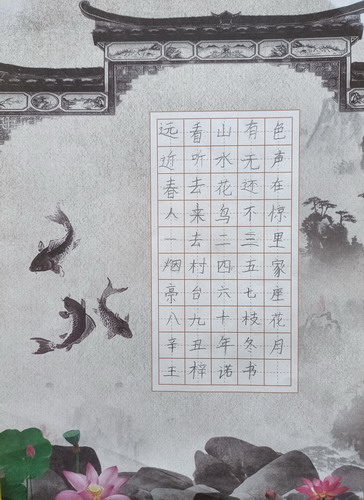 远看山有色
近听水无声
春去花还在
人来鸟不惊
一去二三里
烟村四五家
亭台六七座
八九十枝花
辛丑年冬月
王梓诺书